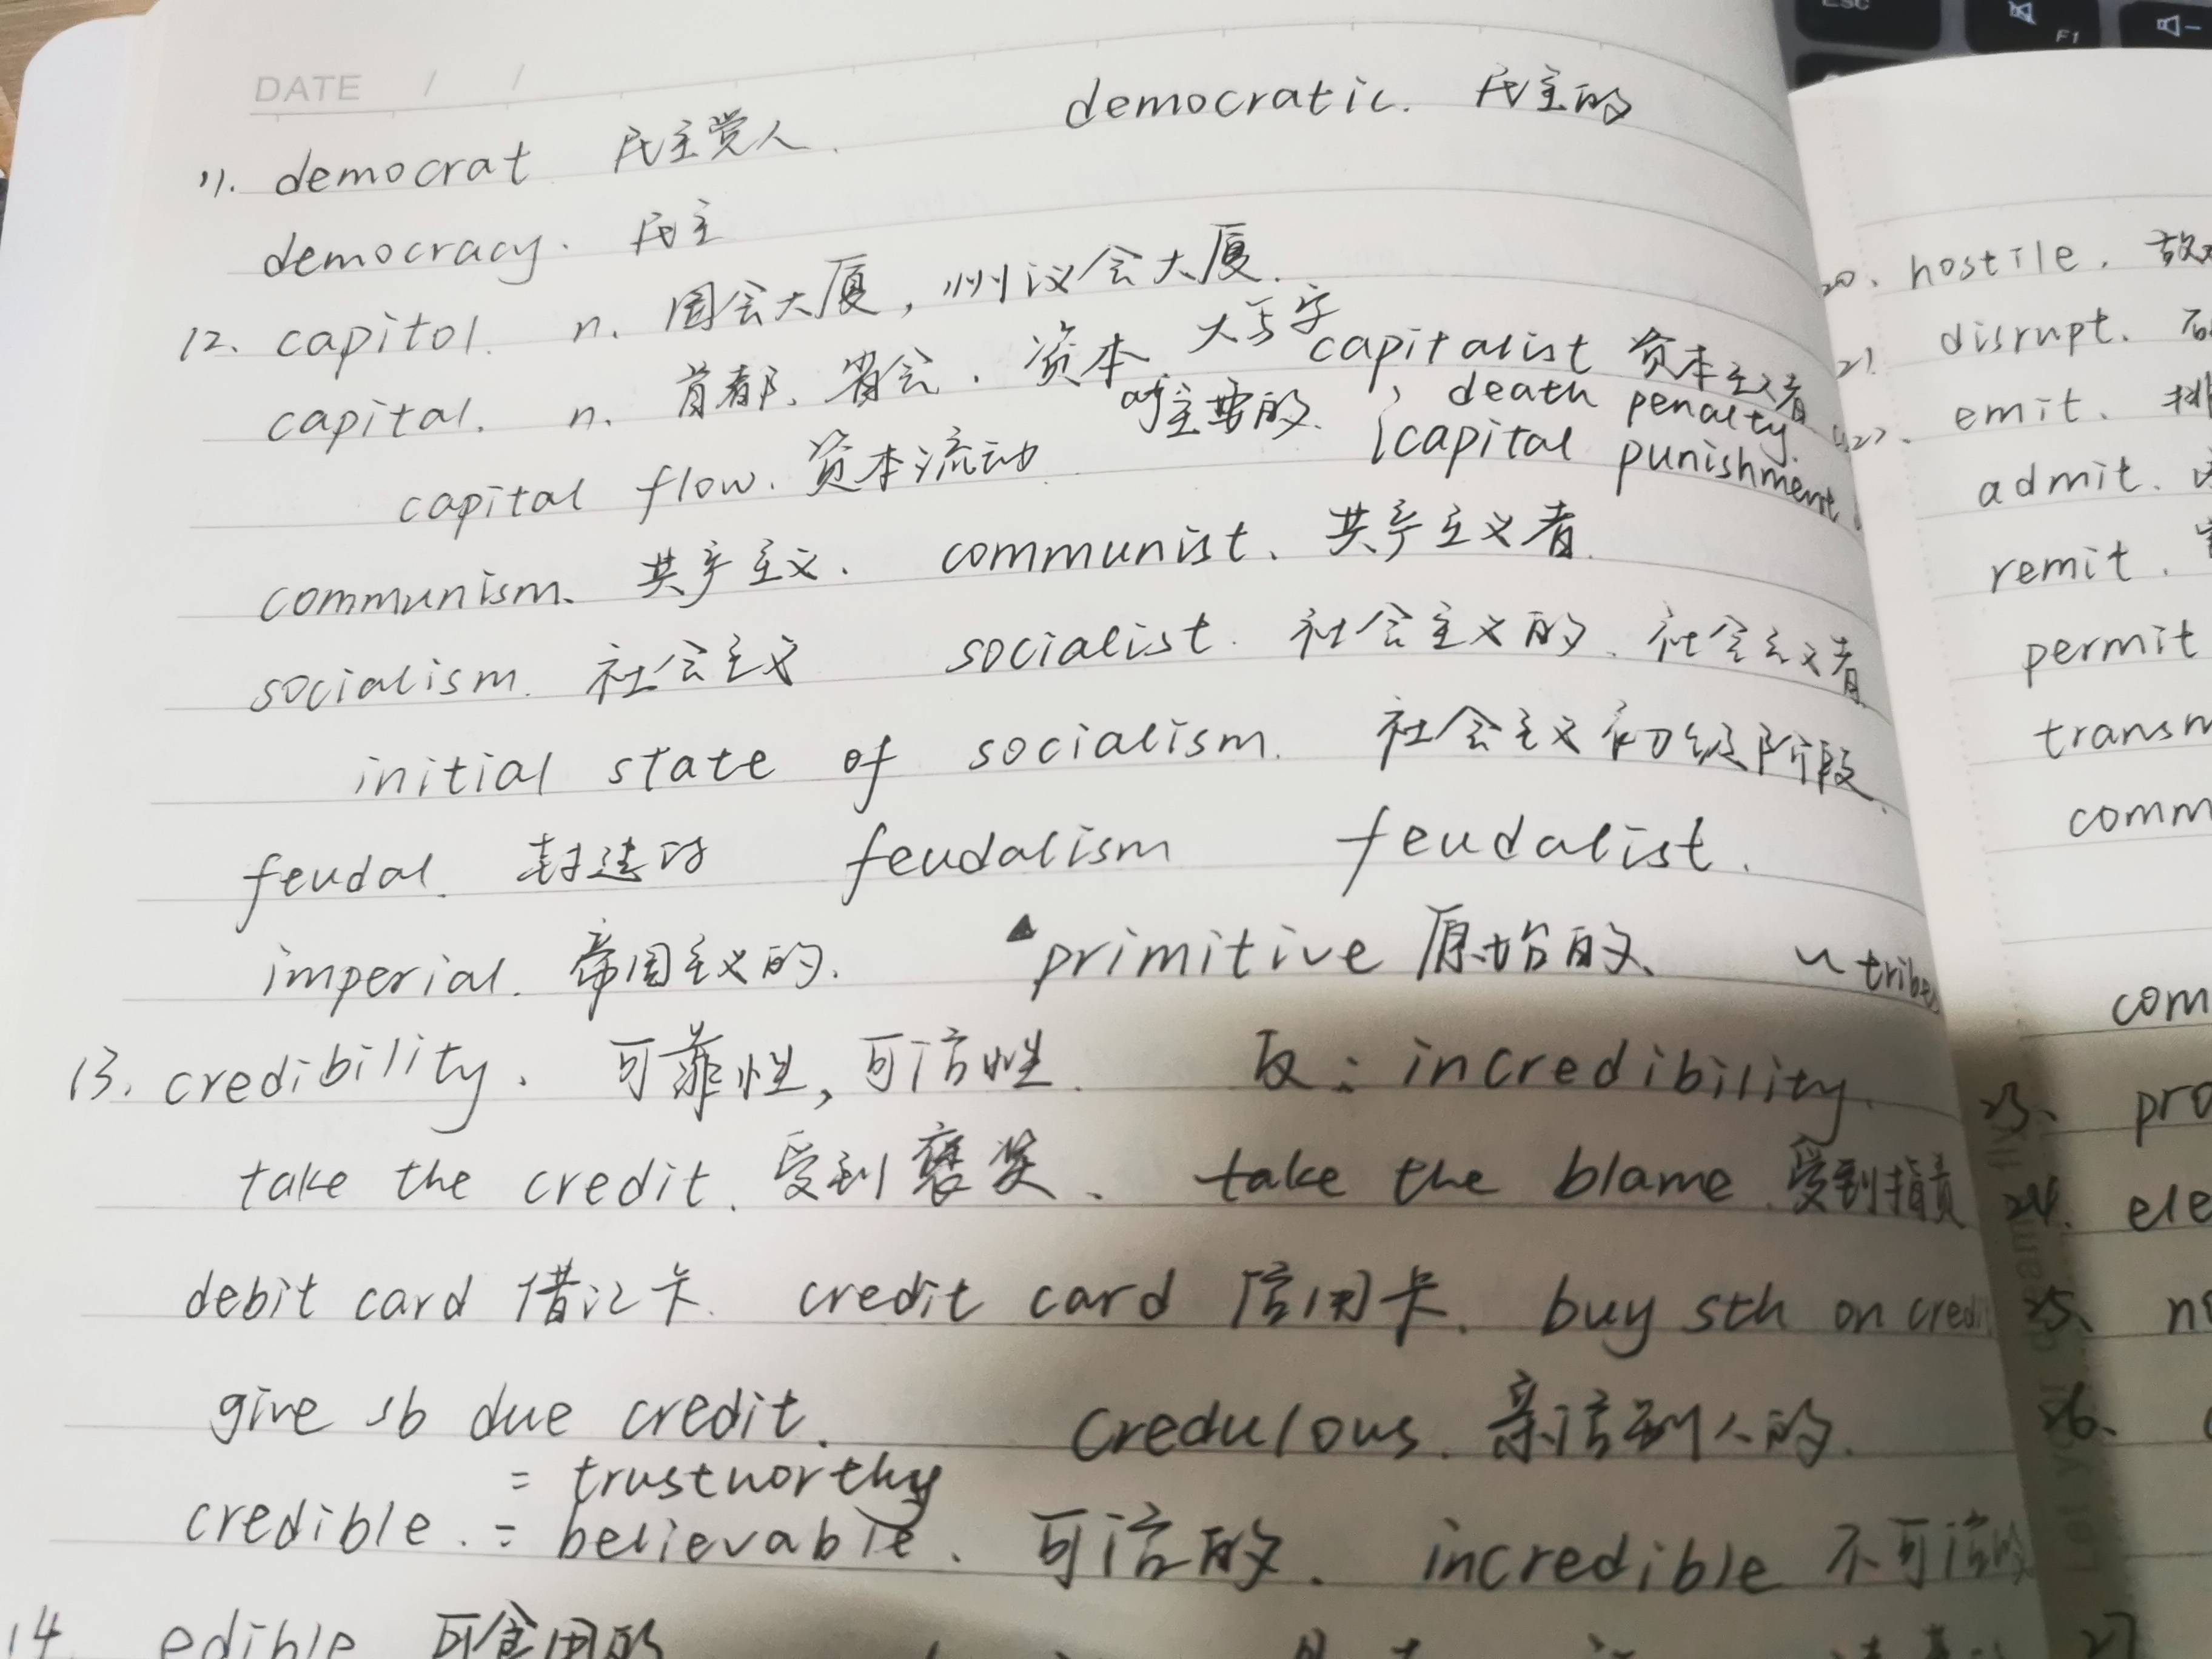 DATE / /
11. democrat 民主党人. democratic. 民主的
democracy. 民主
12. capitol. n. 国会大厦, 州议会大厦.
capital. n. 首都、省会. 资本 大写字 capitalist 资本主义者
adj主要的. death penalty.
capital flow. 资本流动 capital punishment
communism、共产主义. communist、共产主义者.
socialism. 社会主义 socialist. 社会主义的、社会主义者
initial state of socialism. 社会主义初级阶段.
feudal. 封建的 feudalism feudalist.
imperial. 帝国主义的. ▲primitive 原始的、 ~ tribe
13. credibility. 可靠性, 可信性. 反: incredibility.
take the credit. 受到褒奖、 take the blame 受到指责
debit card 借记卡. credit card 信用卡. buy sth on credi
give sb due credit. credulous. 亲信别人的.
= trustworthy
credible. = believable. 可信的. incredible 不可信的
14. edible 可食用的
20. hostile.
21. disrupt.
22. emit.
admit.
remit.
permit
transm
comm
com
23、 pro
24. ele
25、 no
26、
27
Esc
F1